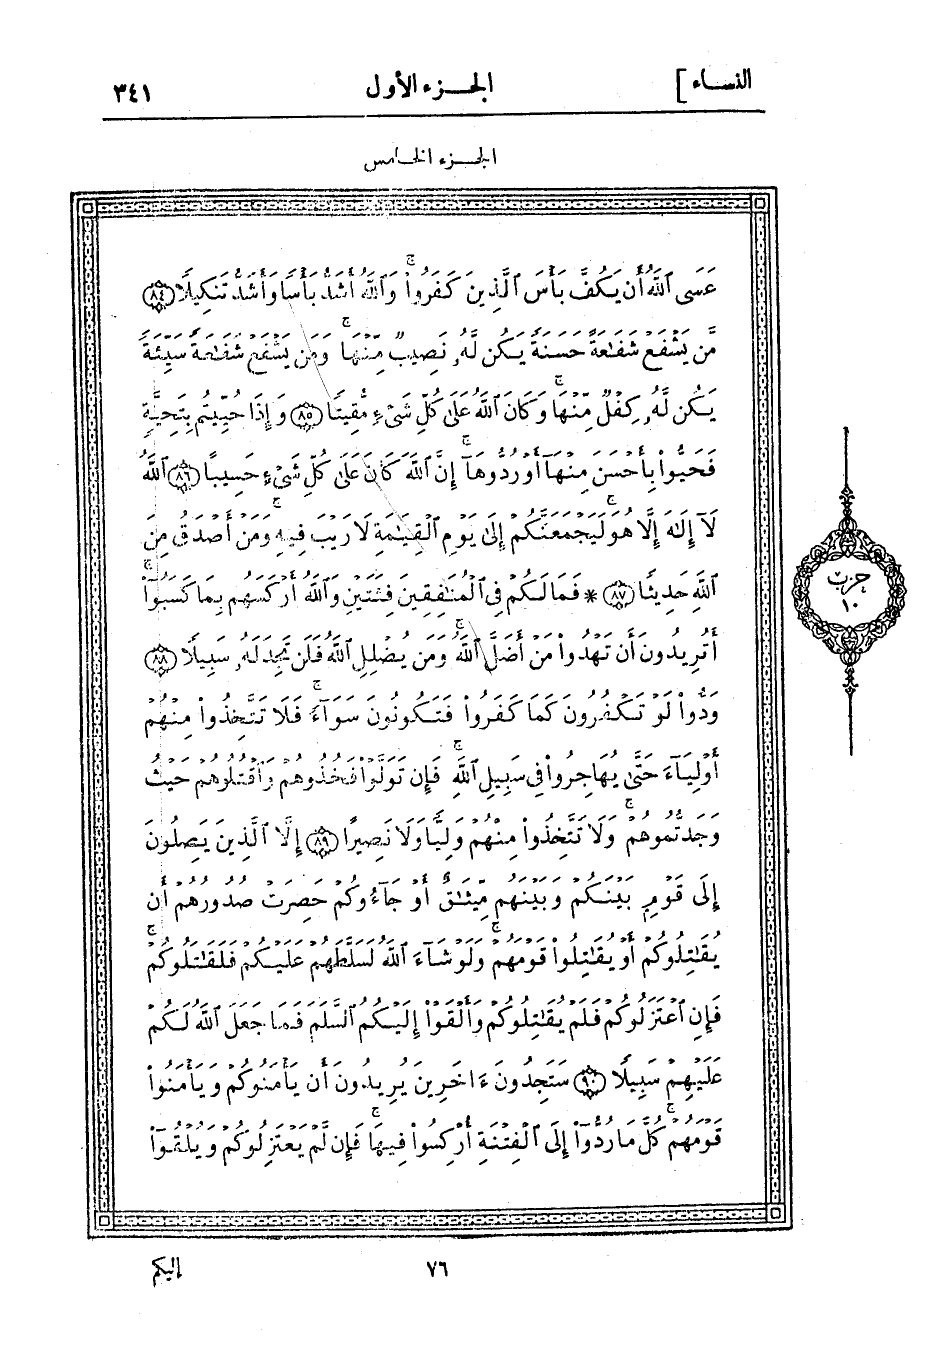 النساء ]
الجزء الأول
٣٤١
الجزء الخامس
عَسَى ٱللَّهُ أَن يَكُفَّ بَأْسَ ٱلَّذِينَ كَفَرُوا۟ ۚ وَٱللَّهُ أَشَدُّ بَأْسًا وَأَشَدُّ تَنكِيلًا ٨٤
مَّن يَشْفَعْ شَفَـٰعَةً حَسَنَةً يَكُن لَّهُۥ نَصِيبٌ مِّنْهَا ۖ وَمَن يَشْفَعْ شَفَـٰعَةً سَيِّئَةً
يَكُن لَّهُۥ كِفْلٌ مِّنْهَا ۗ وَكَانَ ٱللَّهُ عَلَىٰ كُلِّ شَىْءٍ مُّقِيتًا ٨٥ وَإِذَا حُيِّيتُم بِتَحِيَّةٍ
فَحَيُّوا۟ بِأَحْسَنَ مِنْهَآ أَوْ رُدُّوهَآ ۗ إِنَّ ٱللَّهَ كَانَ عَلَىٰ كُلِّ شَىْءٍ حَسِيبًا ٨٦ ٱللَّهُ
لَآ إِلَـٰهَ إِلَّا هُوَ ۚ لَيَجْمَعَنَّكُمْ إِلَىٰ يَوْمِ ٱلْقِيَـٰمَةِ لَا رَيْبَ فِيهِ ۗ وَمَنْ أَصْدَقُ مِنَ
ٱللَّهِ حَدِيثًا ٨٧ * فَمَا لَكُمْ فِى ٱلْمُنَـٰفِقِينَ فِئَتَيْنِ وَٱللَّهُ أَرْكَسَهُم بِمَا كَسَبُوٓا۟ ۚ
أَتُرِيدُونَ أَن تَهْدُوا۟ مَنْ أَضَلَّ ٱللَّهُ ۖ وَمَن يُضْلِلِ ٱللَّهُ فَلَن تَجِدَ لَهُۥ سَبِيلًا ٨٨
وَدُّوا۟ لَوْ تَكْفُرُونَ كَمَا كَفَرُوا۟ فَتَكُونُونَ سَوَآءً ۖ فَلَا تَتَّخِذُوا۟ مِنْهُمْ
أَوْلِيَآءَ حَتَّىٰ يُهَاجِرُوا۟ فِى سَبِيلِ ٱللَّهِ ۚ فَإِن تَوَلَّوْا۟ فَخُذُوهُمْ وَٱقْتُلُوهُمْ حَيْثُ
وَجَدتُّمُوهُمْ ۖ وَلَا تَتَّخِذُوا۟ مِنْهُمْ وَلِيًّا وَلَا نَصِيرًا ٨٩ إِلَّا ٱلَّذِينَ يَصِلُونَ
إِلَىٰ قَوْمٍۭ بَيْنَكُمْ وَبَيْنَهُم مِّيثَـٰقٌ أَوْ جَآءُوكُمْ حَصِرَتْ صُدُورُهُمْ أَن
يُقَـٰتِلُوكُمْ أَوْ يُقَـٰتِلُوا۟ قَوْمَهُمْ ۚ وَلَوْ شَآءَ ٱللَّهُ لَسَلَّطَهُمْ عَلَيْكُمْ فَلَقَـٰتَلُوكُمْ ۚ
فَإِنِ ٱعْتَزَلُوكُمْ فَلَمْ يُقَـٰتِلُوكُمْ وَأَلْقَوْا۟ إِلَيْكُمُ ٱلسَّلَمَ فَمَا جَعَلَ ٱللَّهُ لَكُمْ
عَلَيْهِمْ سَبِيلًا ٩٠ سَتَجِدُونَ ءَاخَرِينَ يُرِيدُونَ أَن يَأْمَنُوكُمْ وَيَأْمَنُوا۟
قَوْمَهُمْ كُلَّ مَا رُدُّوٓا۟ إِلَى ٱلْفِتْنَةِ أُرْكِسُوا۟ فِيهَا ۚ فَإِن لَّمْ يَعْتَزِلُوكُمْ وَيُلْقُوٓا۟
حزب
١٠
٧٦
إليكم